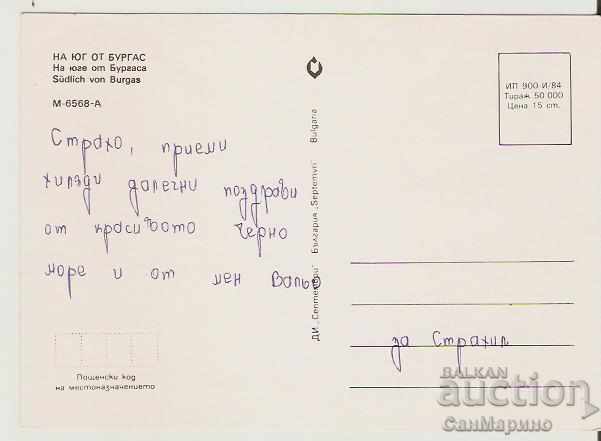 НА ЮГ ОТ БУРГАС
На юге от Бургаса
Südlich von Burgas
М-6568-А
Страхо, приеми
хиляди далечни поздрави
от красивото Черно
море и от мен Ваньо
Пощенски код
на местоназначението
ДИ „Септември" България „Septemvri" Bulgaria
ИП 900-И/84
Тираж 50 000
Цена 15 ст.
за Страхил
BALKAN
auction
СанМарино